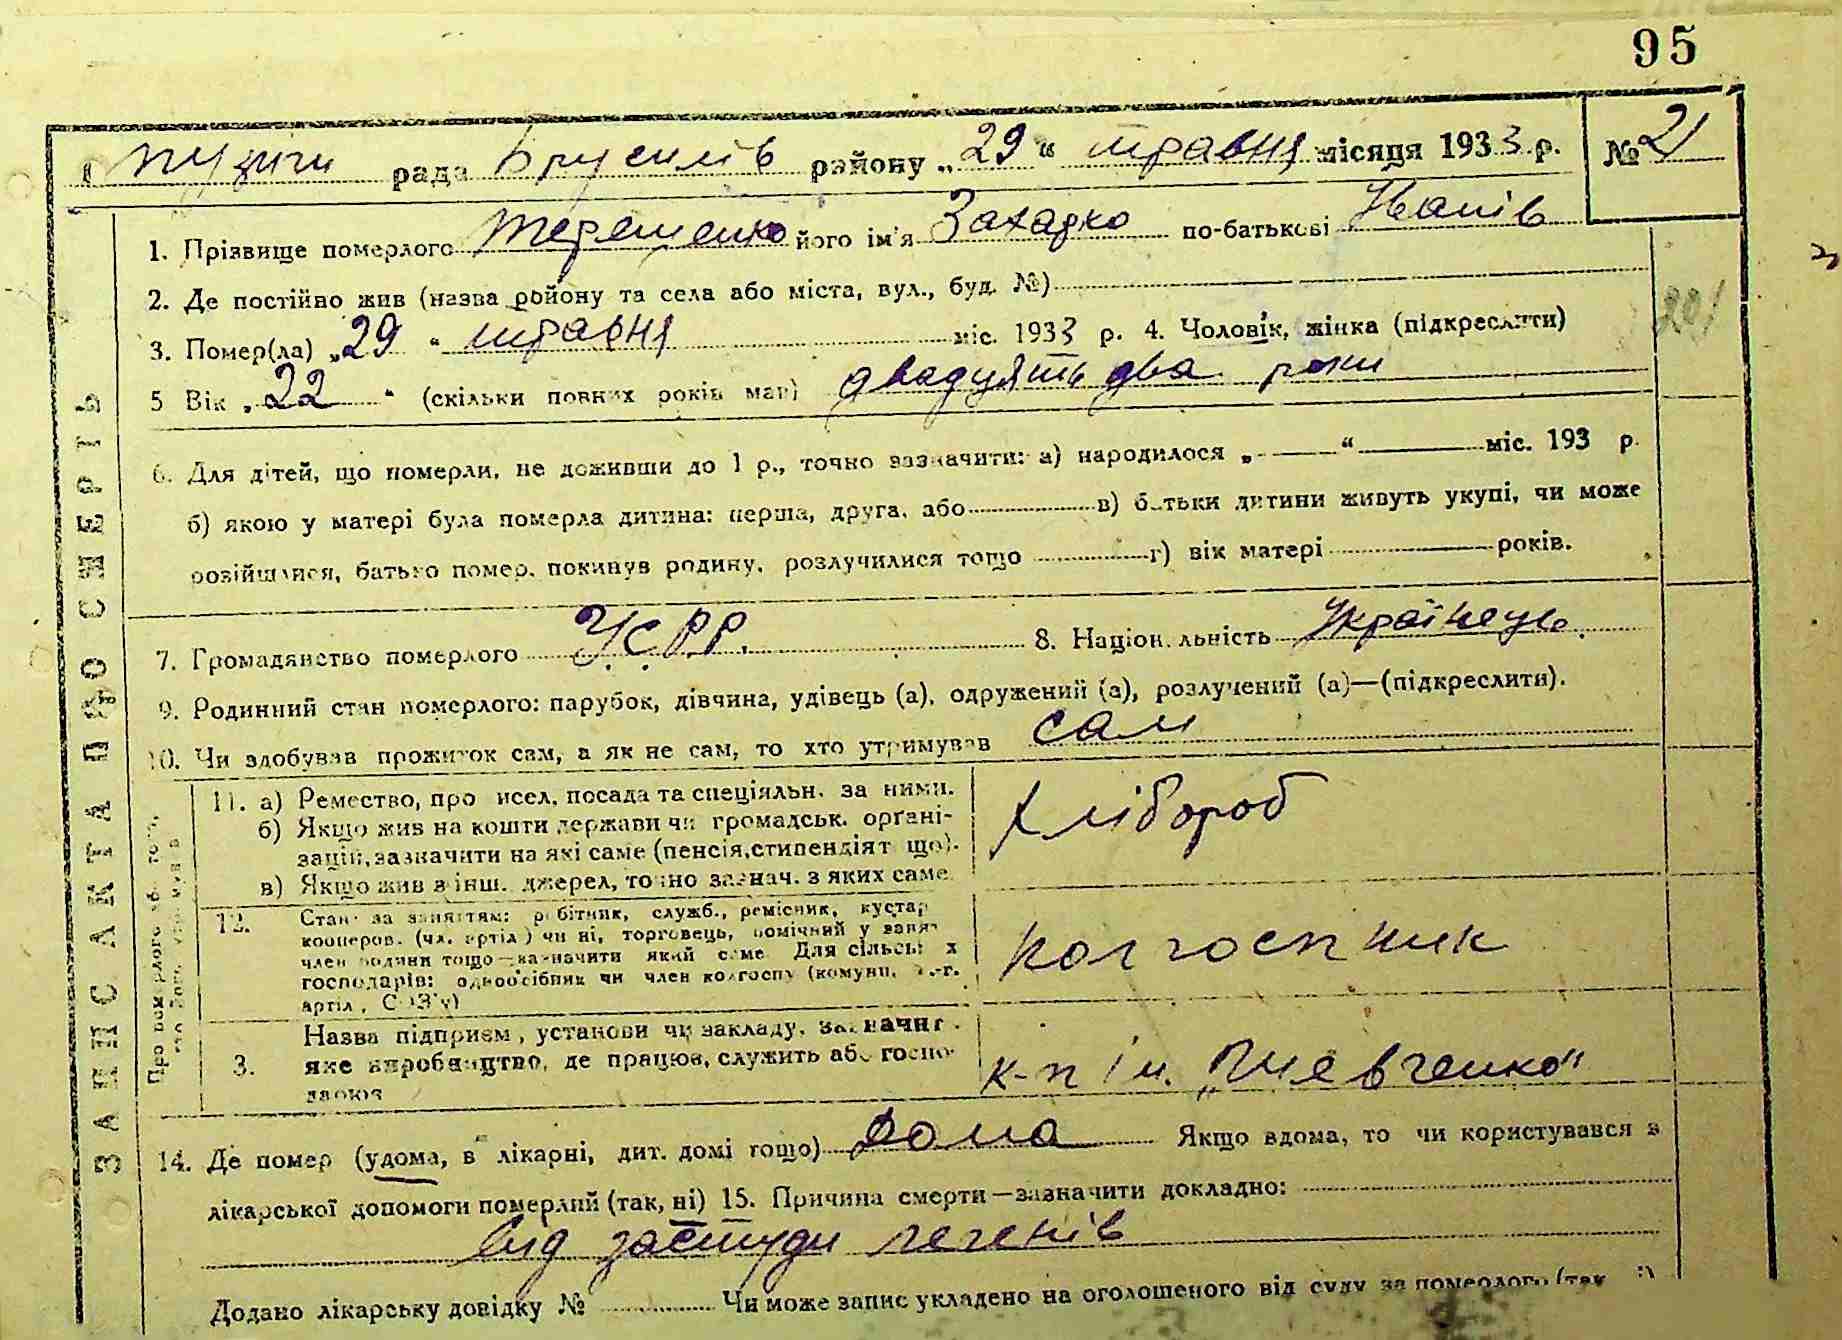 95
пузичи рада Брусилів району „29“ травня місяця 1933 р. № 21
1. Прізвище померлого Терещенко його ім'я Захарко по-батькові Іванів
2. Де постійно жив (назва району та села або міста, вул., буд. №)
3. Помер(ла) „29“ травня міс. 1933 р. 4. Чоловік, жінка (підкреслити)
5 Вік „22“ (скільки повних років мав) двадцять два роки
6. Для дітей, що померли, не доживши до 1 р., точно зазначити: а) народилося „ — “ — міс. 193 р.
б) якою у матері була померла дитина: перша, друга, або в) батьки дитини живуть укупі, чи може
розійшлися, батько помер, покинув родину, розлучилися тощо г) вік матері років.
7. Громадянство померлого УСРР. 8. Національність Українець.
9. Родинний стан померлого: парубок, дівчина, удівець (а), одружений (а), розлучений (а)—(підкреслити).
10. Чи здобував прожиток сам, а як не сам, то хто утримував сам
ЗАПИС АКТА ПРО СМЕРТЬ
11. а) Ремество, про исел, посада та спеціяльн. за ними.
б) Якщо жив на кошти держави чи громадськ. органі-
зацій, зазначити на які саме (пенсія, стипендіят що).
в) Якщо жив з інш. джерел, точно зазнач. з яких саме
Хлібороб
12. Стан за заняттям: робітник, служб., ремісник, кустар
кооперов. (чл. артіл) чи ні, торговець, помічний у заня-
член родини тощо—зазначити який саме. Для сільськ х
господарів: одноосібник чи член колгоспу (комуни,
артіл, СОЗ'у)
колгоспник
3. Назва підприєм, установи чи закладу, зазначит.
яке виробництво, де працюв, служить або госпо-
дарює
к-п ім. „Шевченко“
14. Де помер (удома, в лікарні, дит. домі тощо) дома Якщо вдома, то чи користувався з
лікарської допомоги померлий (так, ні) 15. Причина смерти—зазначити докладно:
від застуди легенів
Додано лікарську довідку № Чи може запис укладено на оголошеного від суду за померлого (так